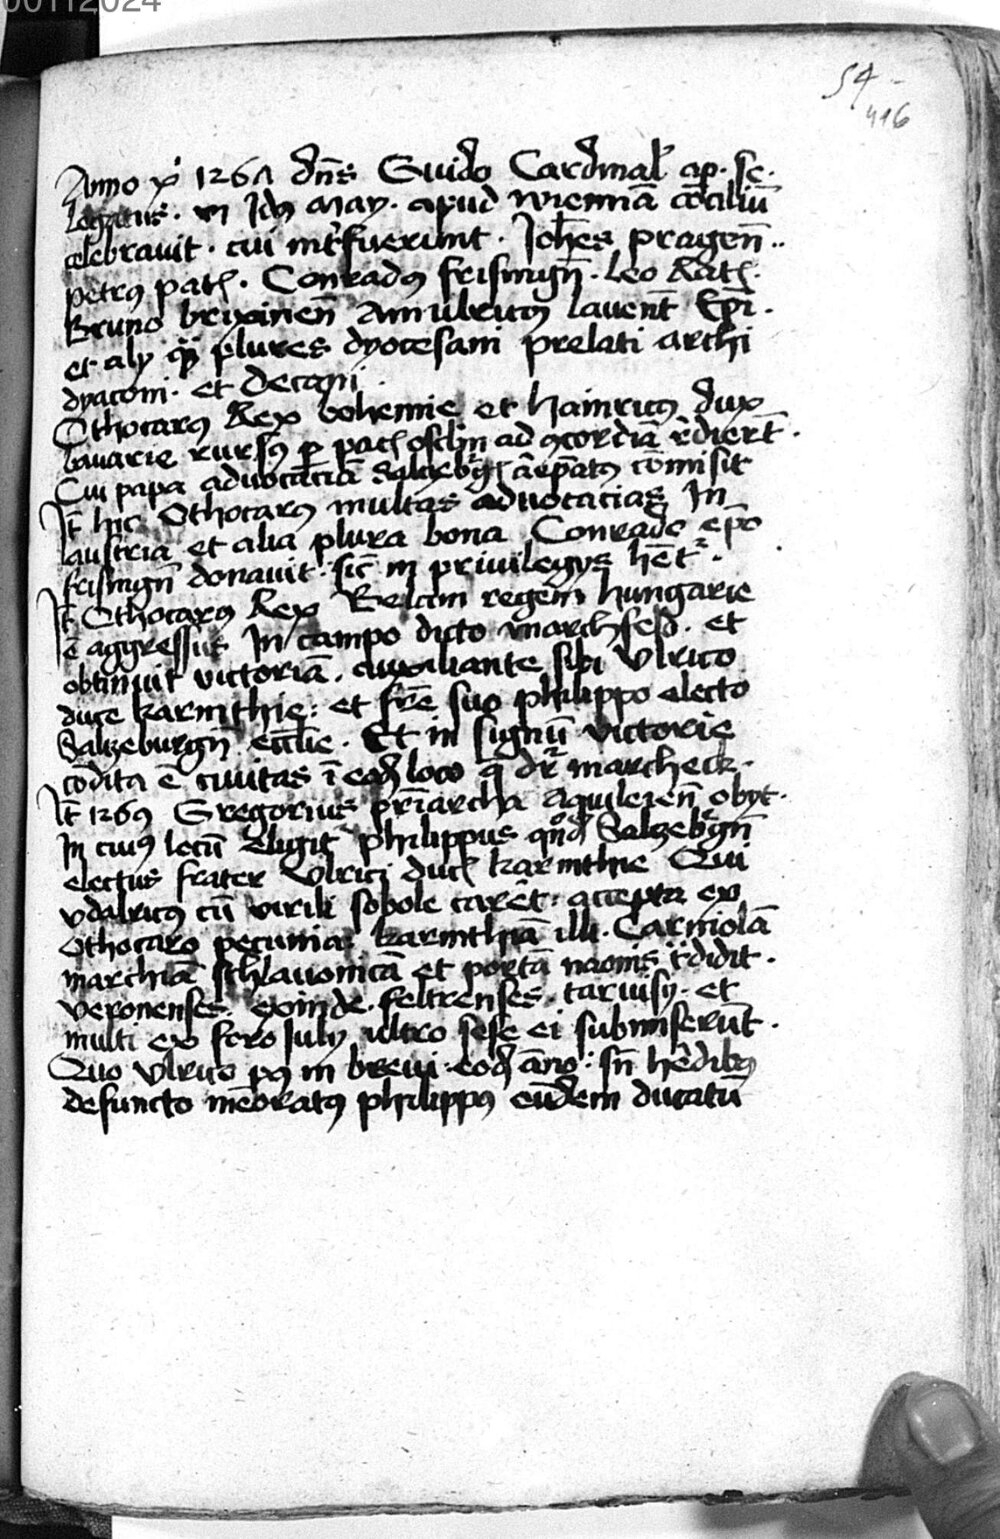 00112024
54
416
Anno xp̄i 1267 dn̄s Guido Cardinal' ap. se.
Legatus. vi Idus May. apud wiennā cōciliū
celebravit. cui int'fuerunt. Joh̄es pragen̄..
petrus patꝫ. Conradus frisingn̄. Leo Ratꝫ.
Bruno brixinen̄ Am ulricus lavent̄ Ep̄i.
et aly q̄ plures dyocesani prelati archi
dyaconi. et Decani.
Othocarus Rex bohemie et hainricus dux
bavarie rursus p ad cōcordiā r̄dierūt.
Cui papa advocaciā Salczburgꝫ cōmisit
It̄ hic Othocarus multas advocacias In
austria et alia plura bona Conrado ep̄o
frisingn̄ donavit. sic̄ in privilegys hēt̄.
It̄ Othocarus Rex Belam regem hungarie
ē aggressus In campo dicto marchfeld. et
obtinuit victoriā. auxiliante sibi Vlrico
duce karinthie: et fr̄e suo philippo electo
Salzeburgn̄ ecclīe. Et in signū victorie
cōdita ē civitas ī eodꝫ loco q̄ dr̄ marcheck.
It̄ 1269 Gregorius pr̄iarcha aquileien̄ obyt.
In cuius locū eligit̄ philippus qn̄dā Salzeburgn̄
electus frater Vlrici ducꝫ karinthie Qui
vdalricus cū virili sobole carēt: accepta ex
Othocaro pecunia: karinthiā illi. Carniolā
marchiā schlavonicā et portā naonis t̄didit.
veronenses. exinde. feltrenses. tarvisy. et
multi ex foro July ultro sese ei submiserūt.
Quo Vlrico pꝰ in brevi. eodꝫ āno: sn̄ hēdibus
defuncto mēoratus philippus eūdem ducatū